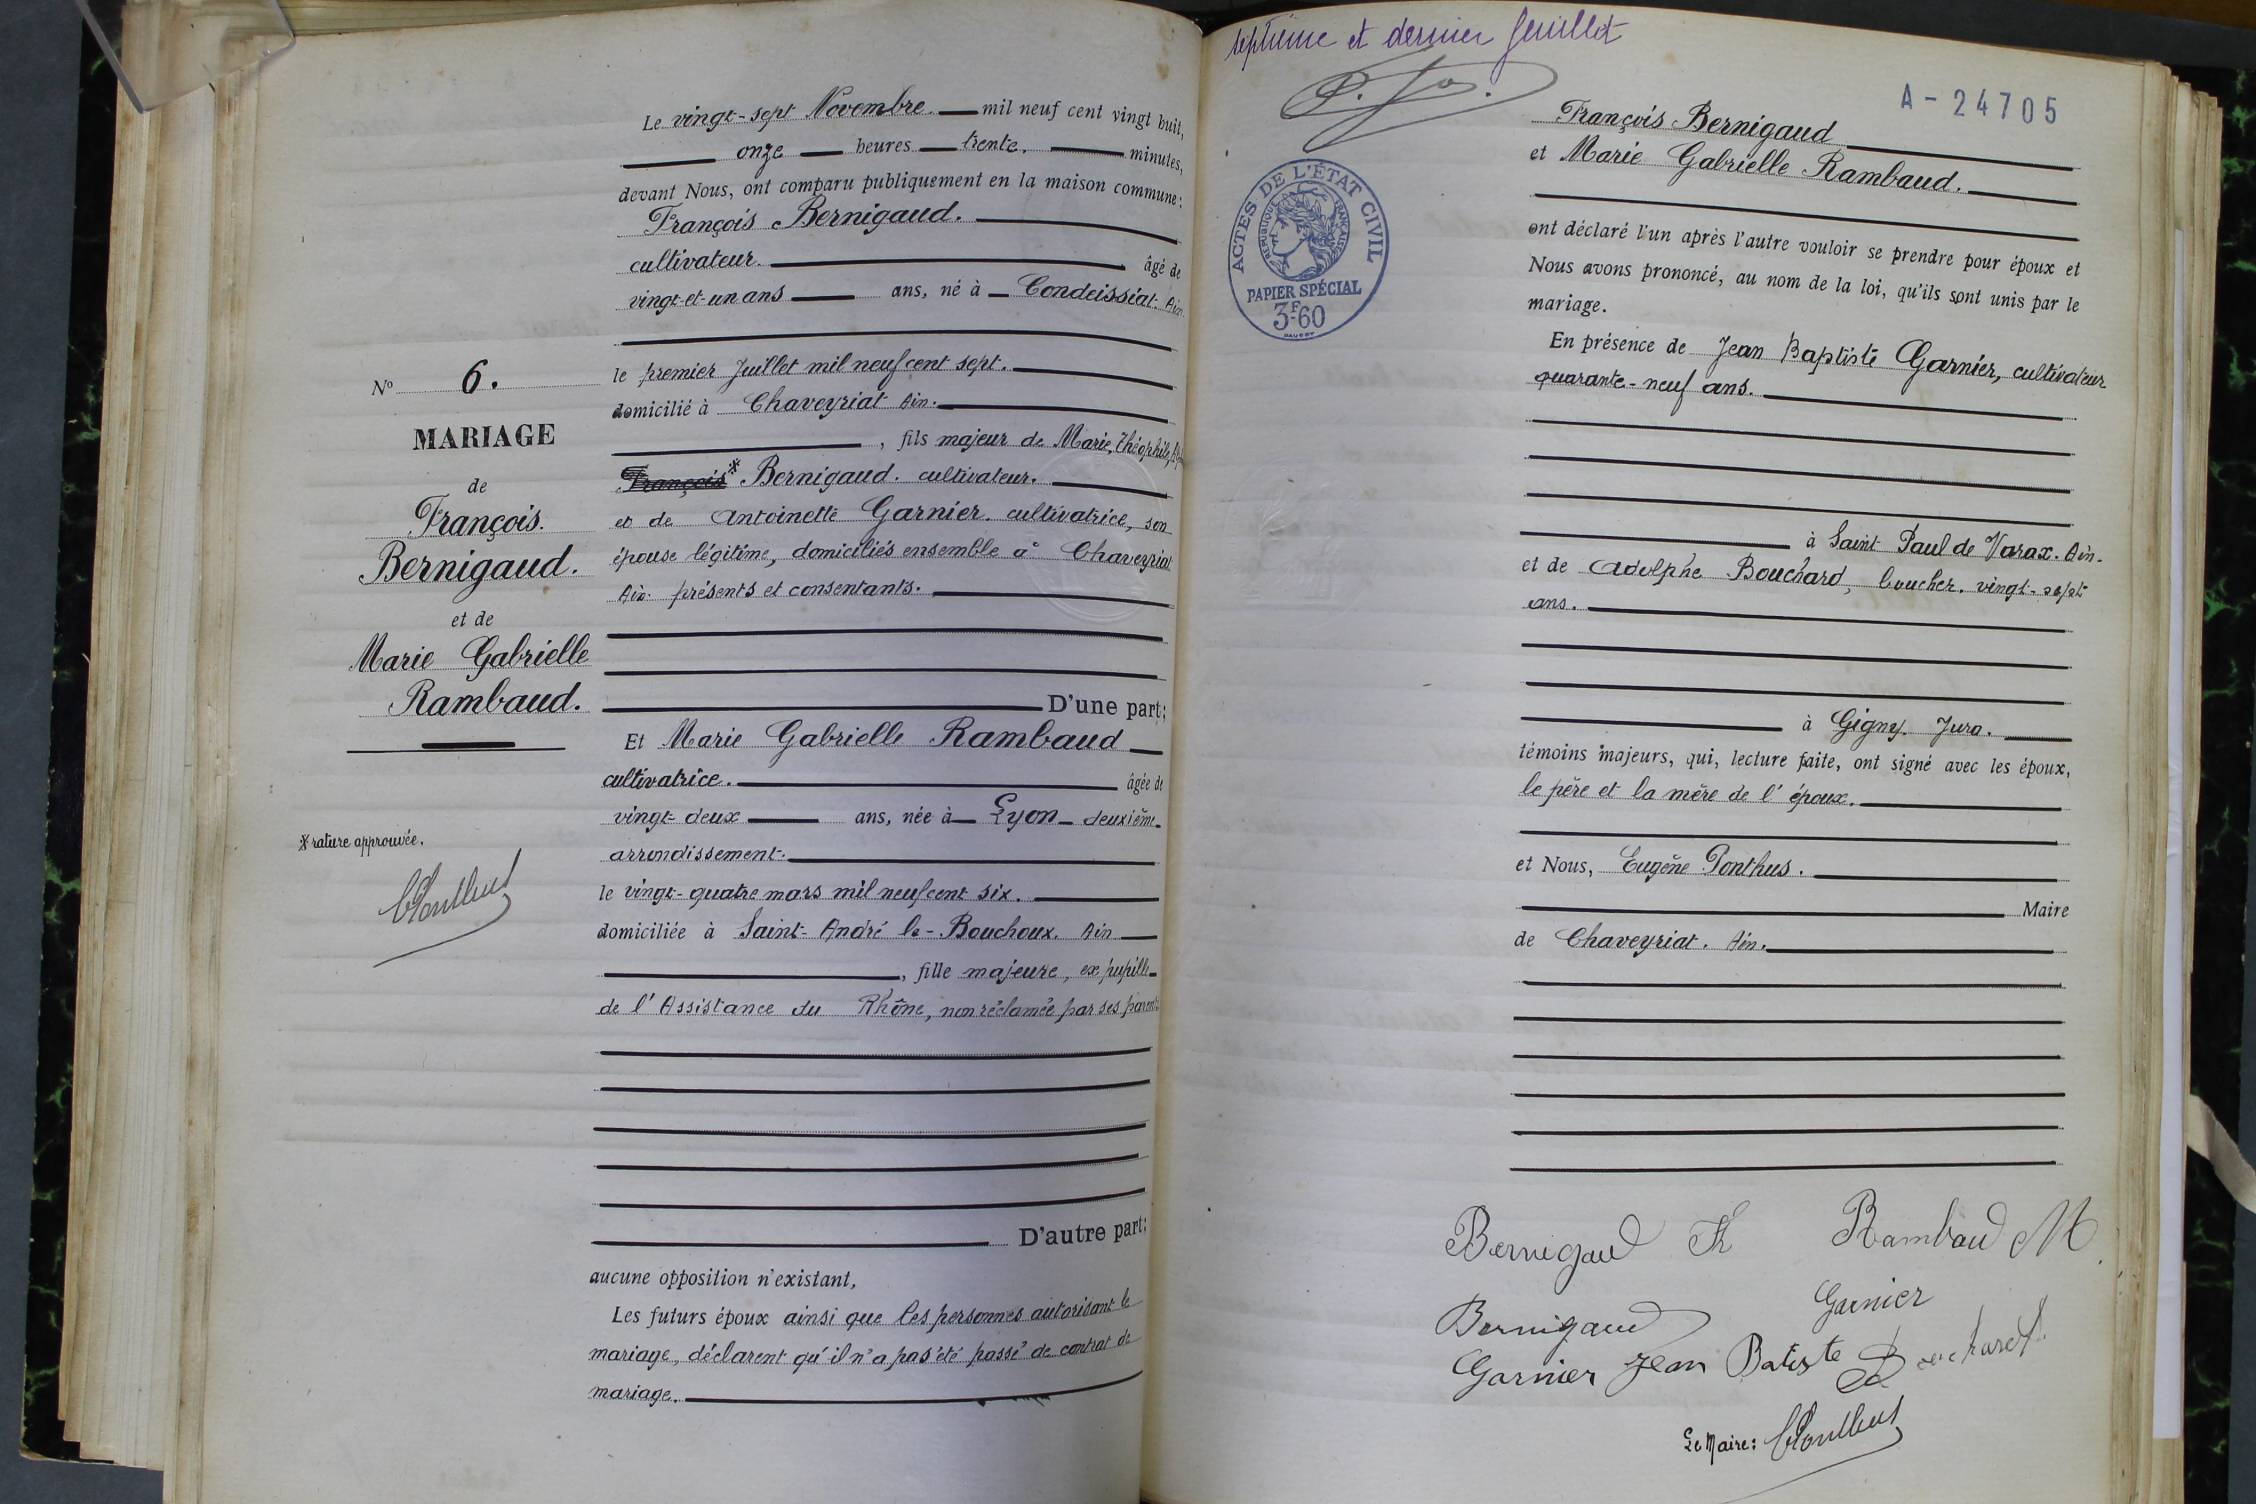 Le vingt-sept Novembre. mil neuf cent vingt huit,
onze heures trente. minutes,
devant Nous, ont comparu publiquement en la maison commune :
François Bernigaud.
cultivateur. âgé de
vingt-et-un ans ans, né à Condeissiat. Ain.
le premier Juillet mil neuf cent sept.
domicilié à Chaveyriat Ain.
, fils majeur de Marie, Théophile,
François* Bernigaud. cultivateur.
et de Antoinette Garnier. cultivatrice, son
épouse légitime, domiciliés ensemble à Chaveyriat
Ain. présents et consentants.
D'une part;
Et Marie Gabrielle Rambaud
cultivatrice. âgée de
vingt-deux ans, née à Lyon deuxième
arrondissement.
le vingt-quatre mars mil neuf cent six.
domiciliée à Saint-André le-Bouchoux. Ain
, fille majeure, ex pupille
de l'Assistance du Rhône, non réclamée par ses parents.
D'autre part;
aucune opposition n'existant,
Les futurs époux ainsi que les personnes autorisant le
mariage, déclarent qu'il n'a pas été passé de contrat de
mariage.
No 6.
MARIAGE
de
François.
Bernigaud.
et de
Marie Gabrielle
Rambaud.
* rature approuvée.
EPonthus
septième et dernier feuillet
A-24705
ACTES DE L'ÉTAT CIVIL
REPUBLIQUE FRANÇAISE
PAPIER SPÉCIAL
3F.60
François Bernigaud
et Marie Gabrielle Rambaud.
ont déclaré l'un après l'autre vouloir se prendre pour époux et
Nous avons prononcé, au nom de la loi, qu'ils sont unis par le
mariage.
En présence de Jean Baptiste Garnier, cultivateur
quarante-neuf ans.
à Saint Paul de Varax. Ain.
et de Adolphe Bouchard, boucher. vingt-sept
ans.
à Gigny. Jura.
témoins majeurs, qui, lecture faite, ont signé avec les époux,
le père et la mère de l'époux.
et Nous, Eugène Ponthus.
Maire
de Chaveyriat. Ain.
Bernigaud Rambaud M
Bernigaud Garnier
Garnier Jean Batiste Bouchard
Le Maire : EPonthus